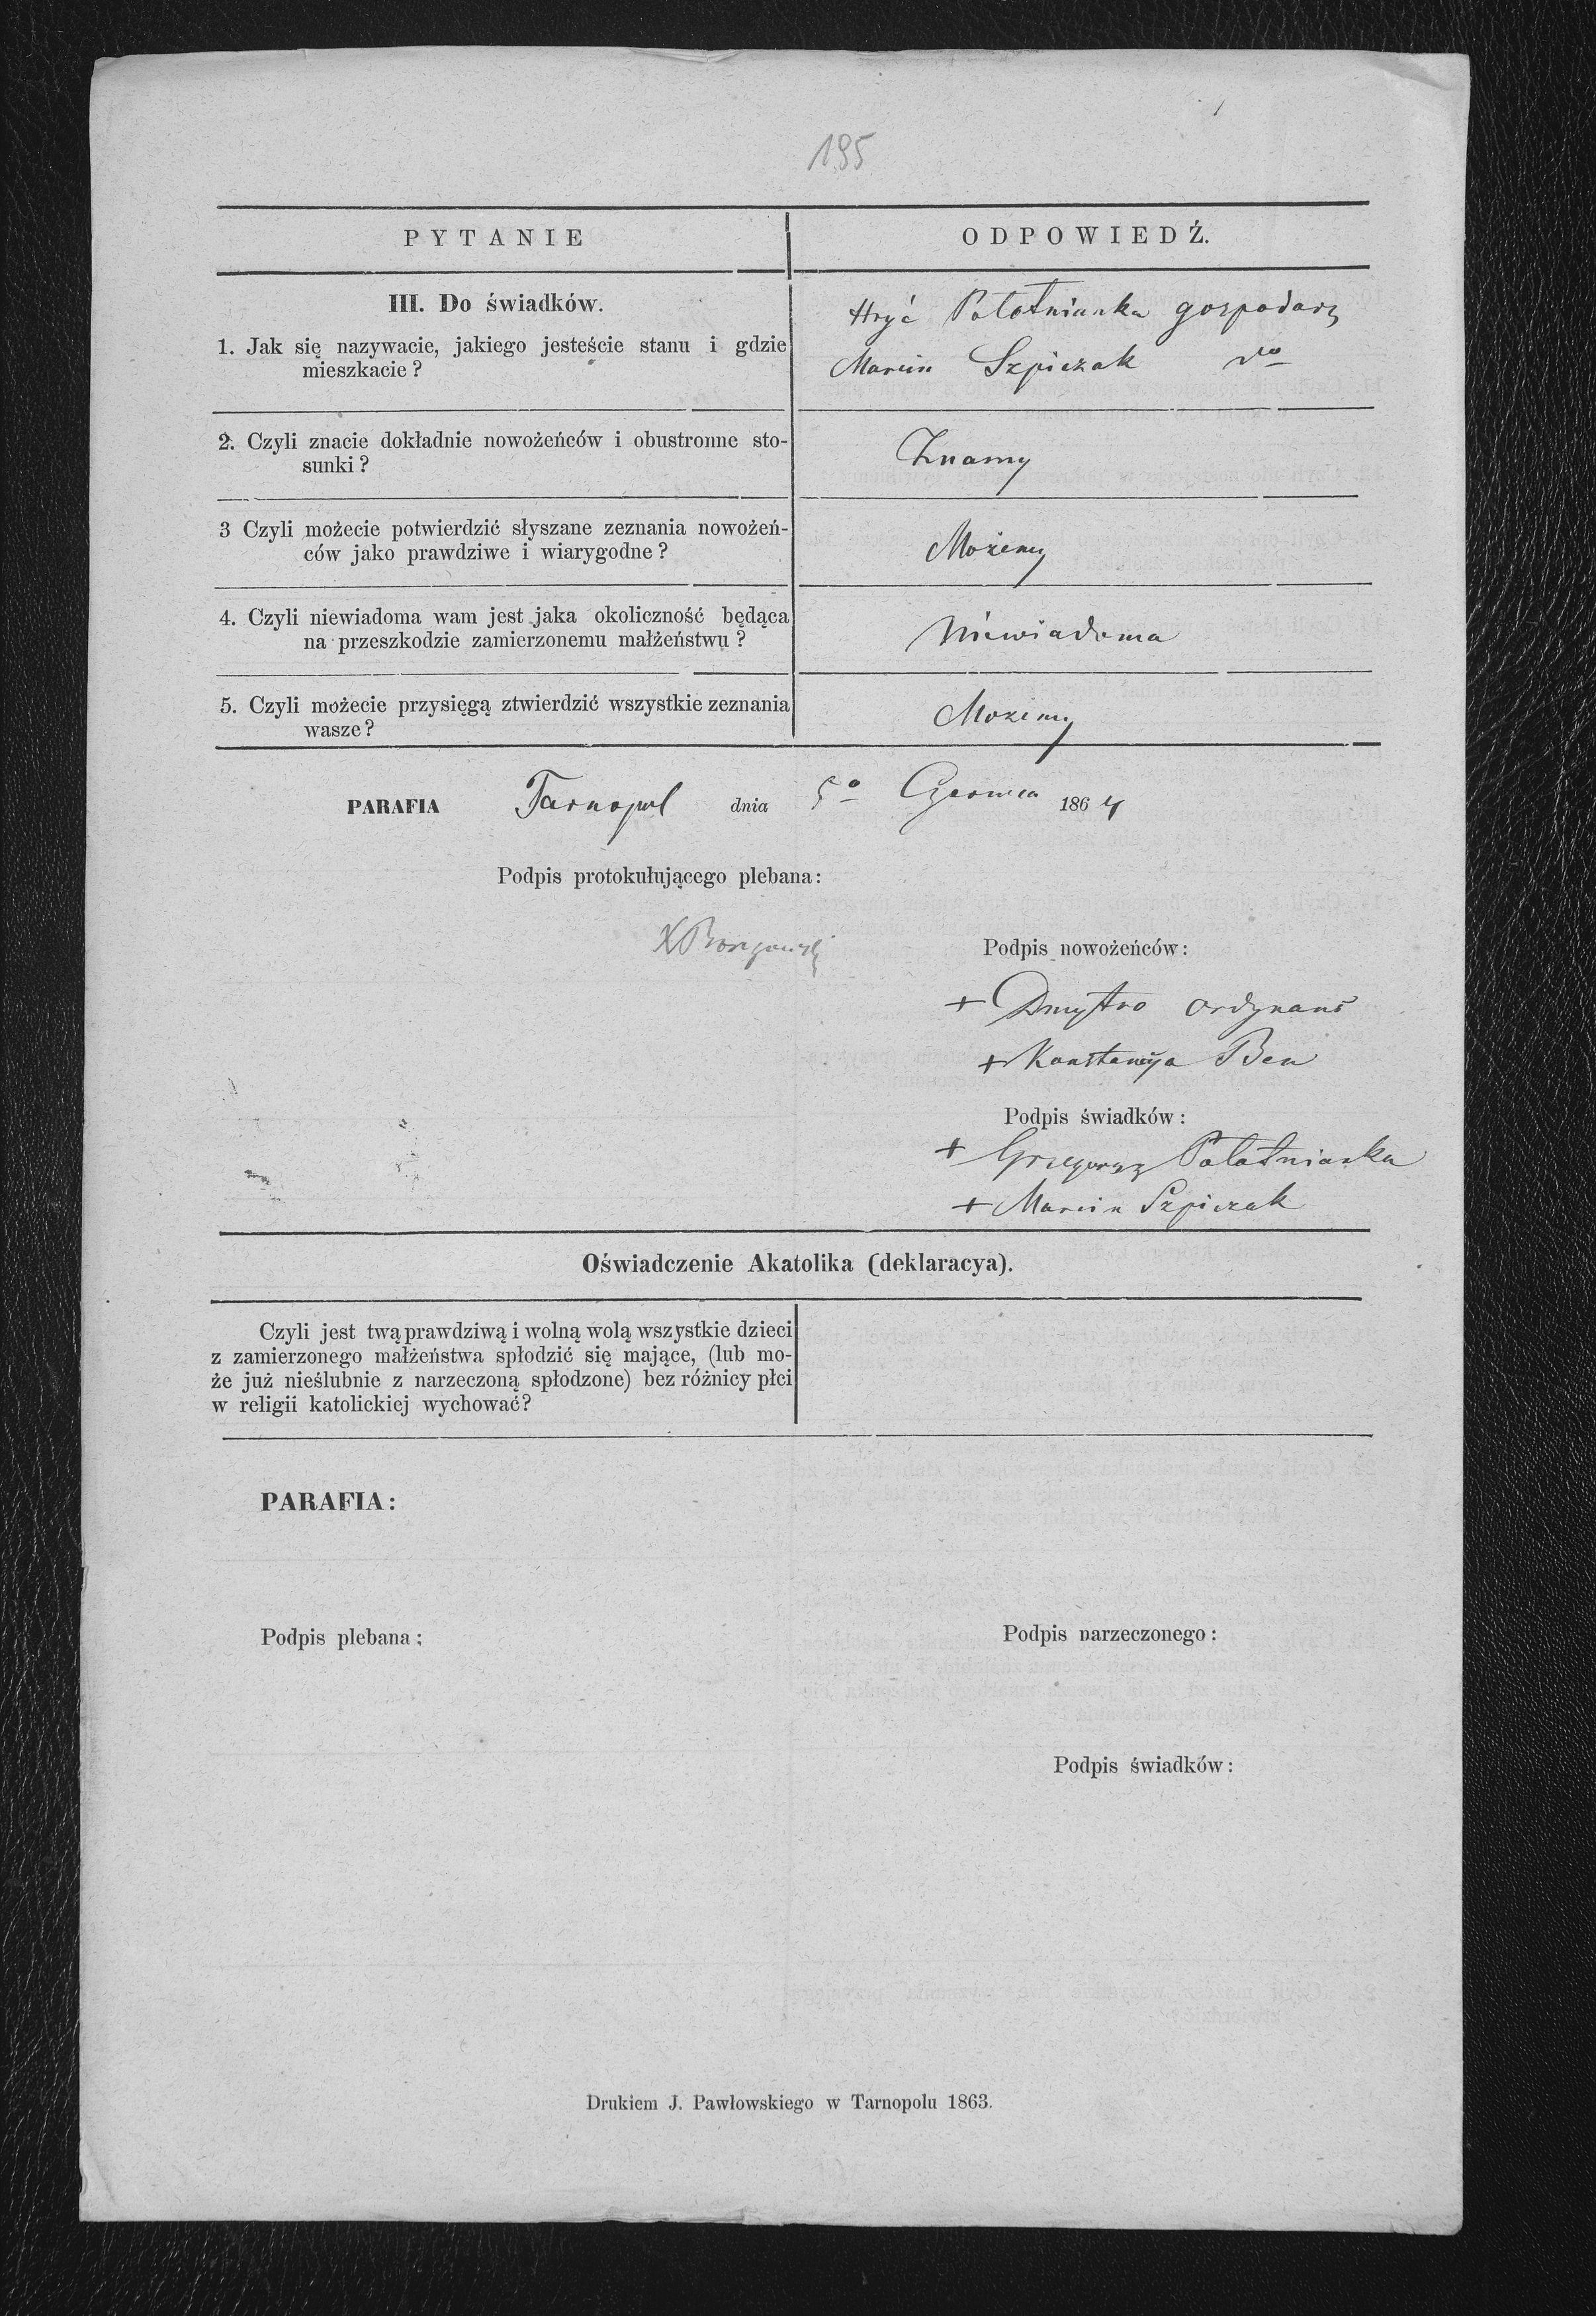 195
PYTANIE
ODPOWIEDŹ.
III. Do świadków.
1. Jak się nazywacie, jakiego jesteście stanu i gdzie
mieszkacie?
Hryć Połotnianka gospodarz
Marcin Szpiczak dto
2. Czyli znacie dokładnie nowożeńców i obustronne sto-
sunki?
Znamy
3 Czyli możecie potwierdzić słyszane zeznania nowożeń-
ców jako prawdziwe i wiarygodne?
Możemy
4. Czyli niewiadoma wam jest jaka okoliczność będąca
na przeszkodzie zamierzonemu małżeństwu?
Niewiadoma
5. Czyli możecie przysięgą ztwierdzić wszystkie zeznania
wasze?
Możemy
PARAFIA Tarnopol dnia 5o Czerwca 1864
Podpis protokułującego plebana:
Podpis nowożeńców:
+ Dmytro Ordynans
+ Konstancya Ben
Podpis świadków:
+ Grzegorz Połotnianka
+ Marcin Szpiczak
Oświadczenie Akatolika (deklaracya).
Czyli jest twą prawdziwą i wolną wolą wszystkie dzieci
z zamierzonego małżeństwa spłodzić się mające, (lub mo-
że już nieślubnie z narzeczoną spłodzone) bez różnicy płci
w religii katolickiej wychować?
PARAFIA:
Podpis plebana:
Podpis narzeczonego:
Podpis świadków:
Drukiem J. Pawłowskiego w Tarnopolu 1863.